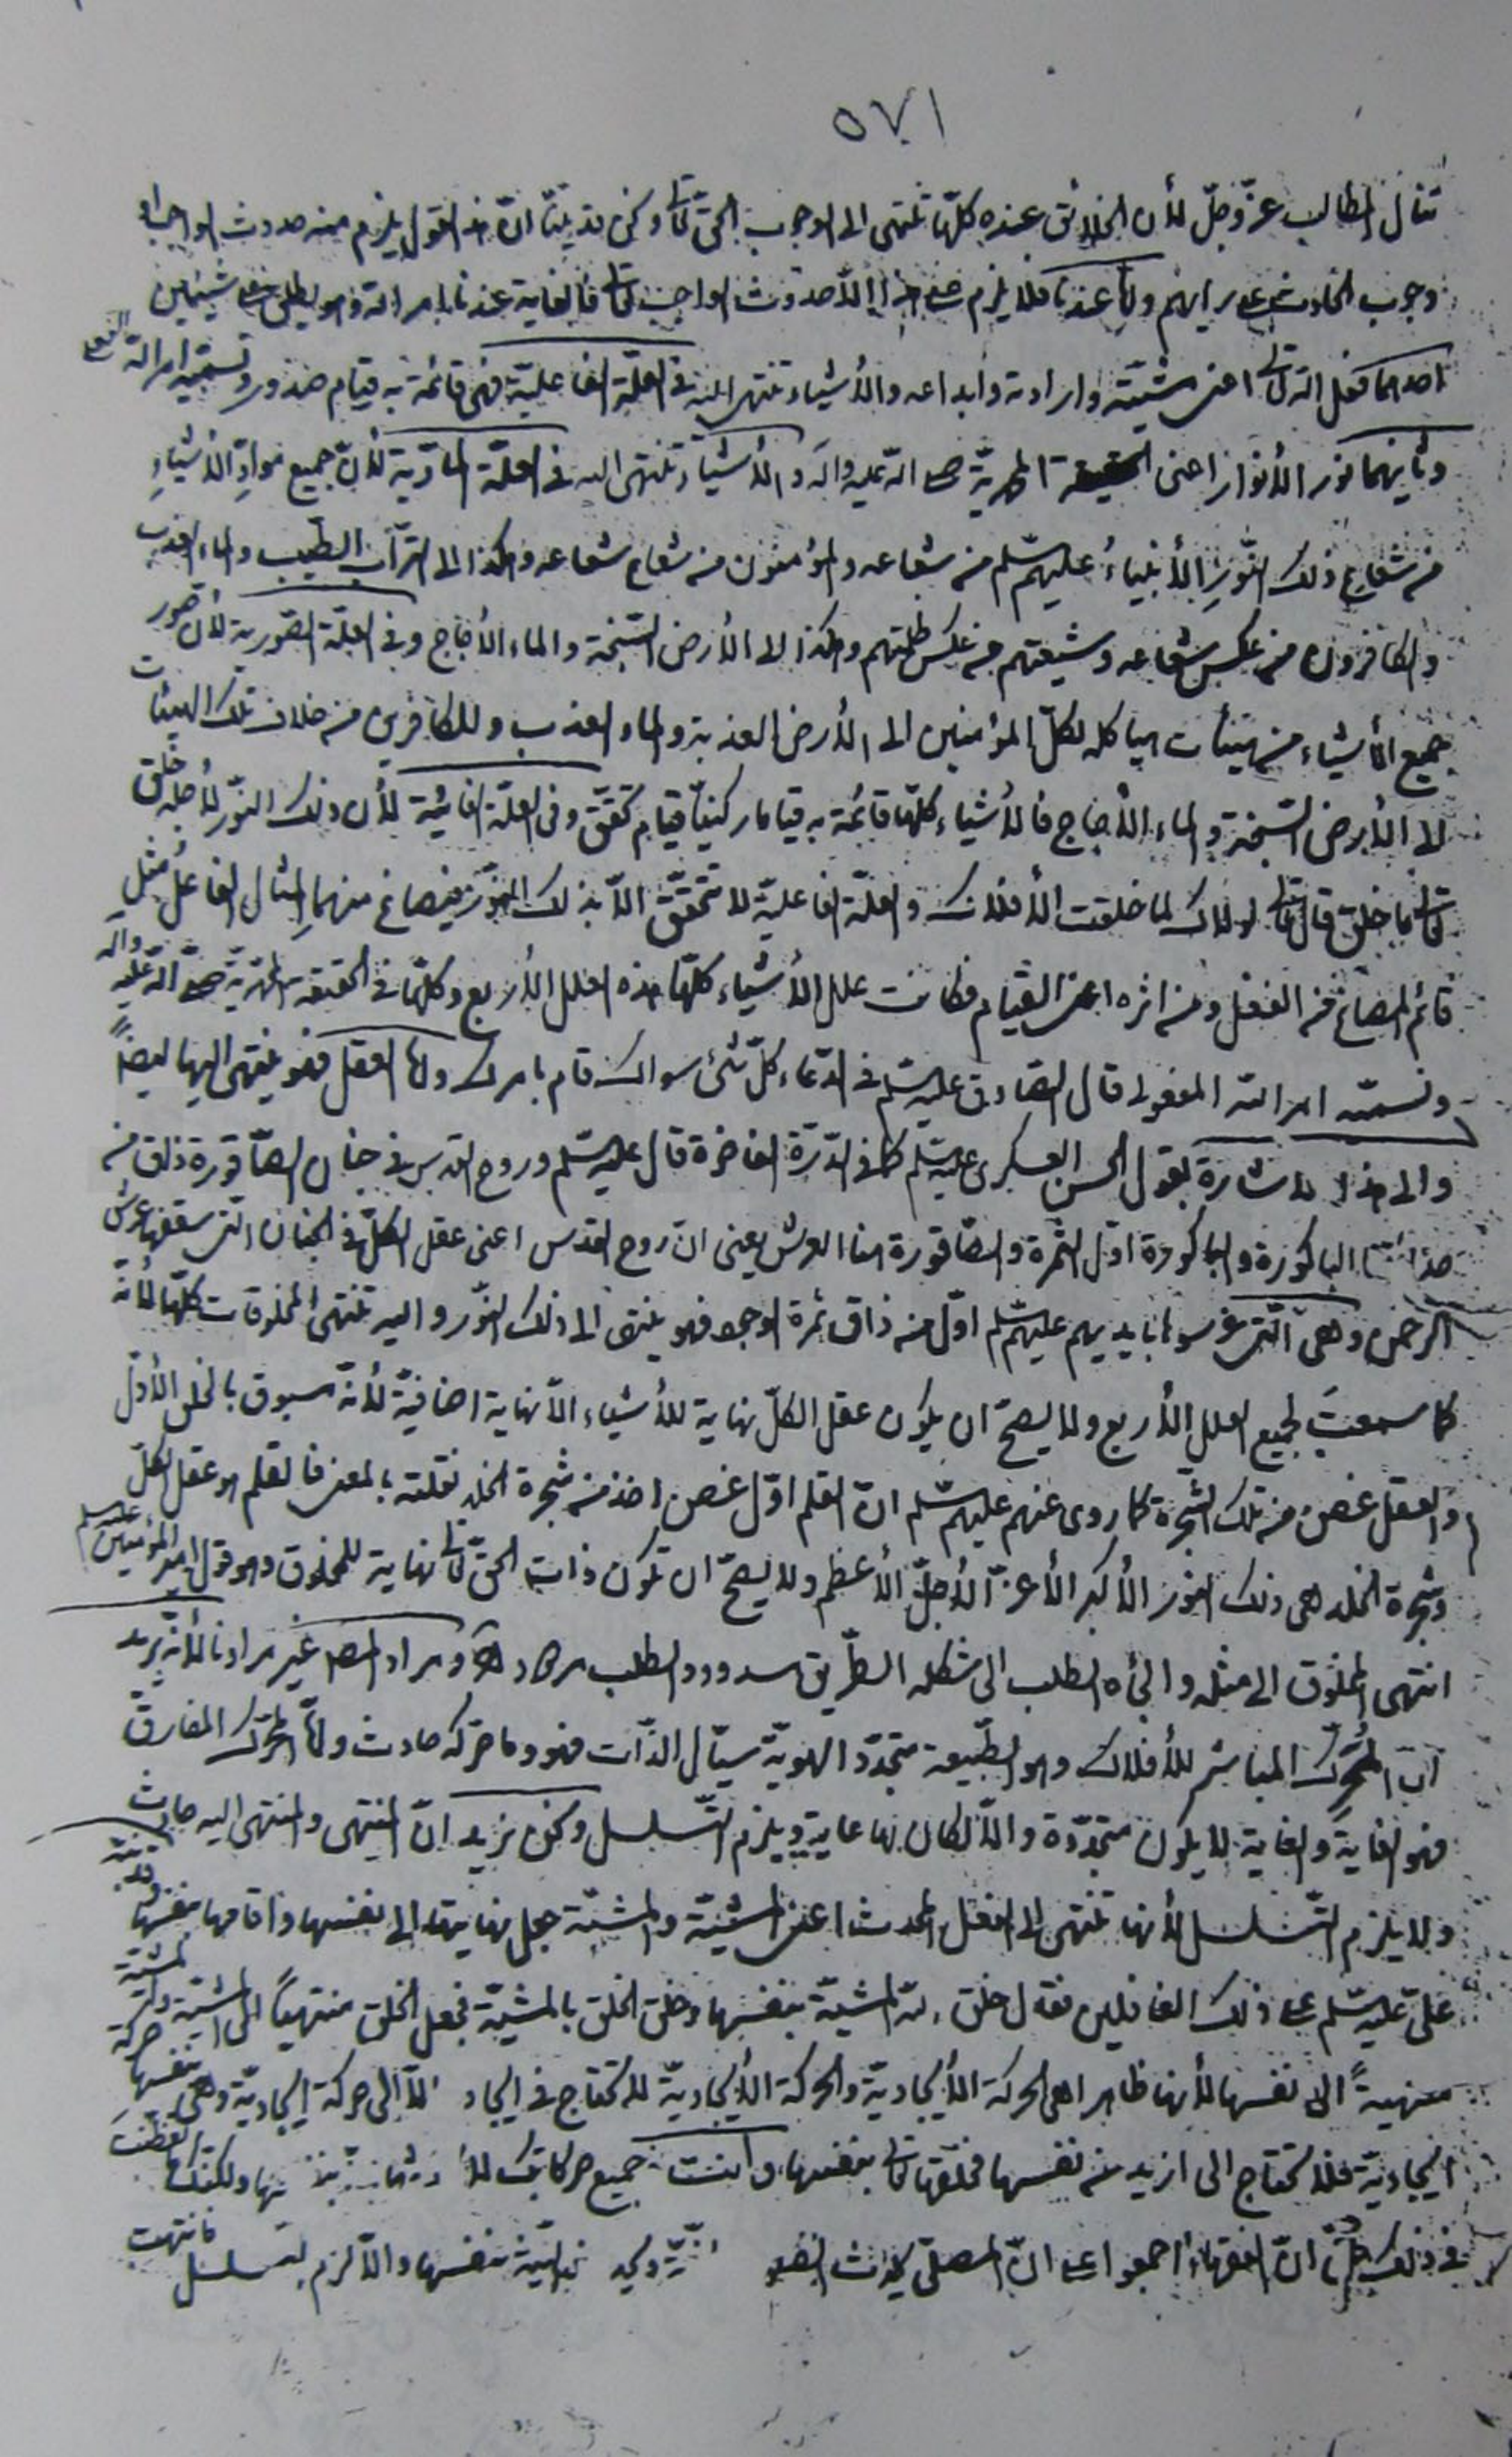 ٥٧١
تنال المطالب عزّ وجلّ لأن الخلائق عنده كلّها تنتهى الى الوجوب الحق تعالى ونحن قد بيّنّا انّ هذا القول يلزم منه حدوث الواجب او
وجوب الحادث على رأيهم وامّا عندنا فلا يلزم منه هذا الّا حدوث الواجب تعالى فالغاية عندنا امر الله وهو يطلق على شيئين
احدهما فعل الله تعالى اعنى مشيّته وارادته وابداعه والأشياء تنتهى اليه فى العلّة الفاعليّة فهى قائمة به قيام صدور ونسمّيه امر الله الفعلى
وثانيهما نور الأنوار اعنى الحقيقة المحمدية صلى الله عليه وآله والأشياء تنتهى اليه فى العلّة المادّية لأنّ جميع موادّ الأشياء
من شعاع ذلك النّور الأنبياء عليهم السّلم من شعاعه والمؤمنون من شعاع شعاعه وهكذا الى التراب الطيب والماء العذب
والكافرون من عكس شعاعه وشيعتهم من عكس ظلمتهم وهكذا الى الأرض السّبخة والماء الأجاج وفى العلّة الصّورية لأن صور
جميع الأشياء من هيئات هياكله لكلّ المؤمنين الى الأرض العذبة والماء العذب وللكافرين من خلاف تلك الهيئات
الى الأرض السّبخة والماء الأجاج فالأشياء كلّها قائمة به قياما ركنيّا قيام تحقّق وفى العلّة الغائيّة لأن ذلك النّور لأجله خلق
تعالى ما خلق قال تعالى لولاك لما خلقت الأفلاك والعلّة الفاعليّة لا تتحقّق الّا بذلك النّور فيصاغ منهما المثال الفاعل مثل
قائم المصاغ من الفعل ومن اثره اعنى القيام فكانت علل الأشياء كلّها هذه العلل الأربع وكلّها فى الحقيقة المحمّديّة صلّى الله عليه وآله
ونسمّيه امر الله المفعولى قال الصّادق عليه السّلم فى الدّعاء كلّ شئ سواك قام بامرك وامّا العقل فهو ينتهى اليها ايضاً
والى هذا الاشارة بقول الحسن العسكرى عليه السّلم كما فى الدّرّة الفاخرة قال عليه السّلم وروح القدس فى جنان الصّاقورة ذاق من
حدائقنا الباكورة والباكورة اوّل الثّمرة والصّاقورة هنا العرش يعنى ان روح القدس اعنى عقل الكلّ فى الجنان الّتى سقفها عرش
الرحمن وهى الّتى غرسوها بايديهم عليهم السّلم اوّل من ذاق ثمرة الوجود فهو ينتهى الى ذلك النّور واليه تنتهى المخلوقات كلّها لأنّه
كما سمعتَ لجميع العلل الأربع ولا يصحّ ان يكون عقل الكلّ نهاية للأشياء الّا نهاية اضافيّة لأنّه مسبوق بالخلق الأوّل
والعقل غصن من تلك الشّجرة كما روى عنهم عليهم السّلم انّ القلم اوّل غصن اخذ من شجرة الخلد نقلته بالمعنى فالقلم هو عقل الكلّ
وشجرة الخلد هى ذلك النور الأكبر الأعزّ الأجلّ الأعظم ولا يصحّ ان تكون ذات الحقّ تعالى نهاية للمخلوق وهو قول امير المؤمنين عليه السّلم
انتهى المخلوق الى مثله والجأه الطلب الى شكله الطّريق مسدود والطلب مردود ومراد المصـ غير مرادنا لأنّه يريد
انّ المُحرِّك المباشر للأفلاك وهو الطّبيعة متجدّد الهويّة سيّال الذّات فهو وما حرّكه حادث وامّا المحرّك المفارق
فهو الغاية والغاية لا يكون متجدّدة والّا لكان لها غاية ويلزم التّسلسل ونحن نريد انّ المنتهى والمنتهى اليه حادث
ولا يلزم التّسلسل لأنها تنتهى الى الفعل المحدث اعنى المشيّة والمشيّة جعل نهايتها الى نفسها واقامها بنفسها وقد نبّه
علىّ عليه السّلم على ذلك الغافلين فقال خلق الله المشيّة بنفسها وخلق الخلق بالمشيّة فجعل الخلق منتهياً الى المشيّة والمشيّة
منتهيةً الى نفسها لأنها ظاهرا هى الحركة الأيجاديّة والحركة الأيجاديّة لا تحتاج فى ايجاد الّا الى حركة ايجاديّة وهى بنفسها حركة
ايجاديّة فلا تحتاج الى ازيد من نفسها فخلقها تعالى بنفسها وانت جميع حركاتك ولكنّك ما تفطّنت
فى ذلك انّ الفقهاء اجمعوا على انّ المصلّى يحدث النيّة بنفسها والّا لزم التّسلسل فانتهت